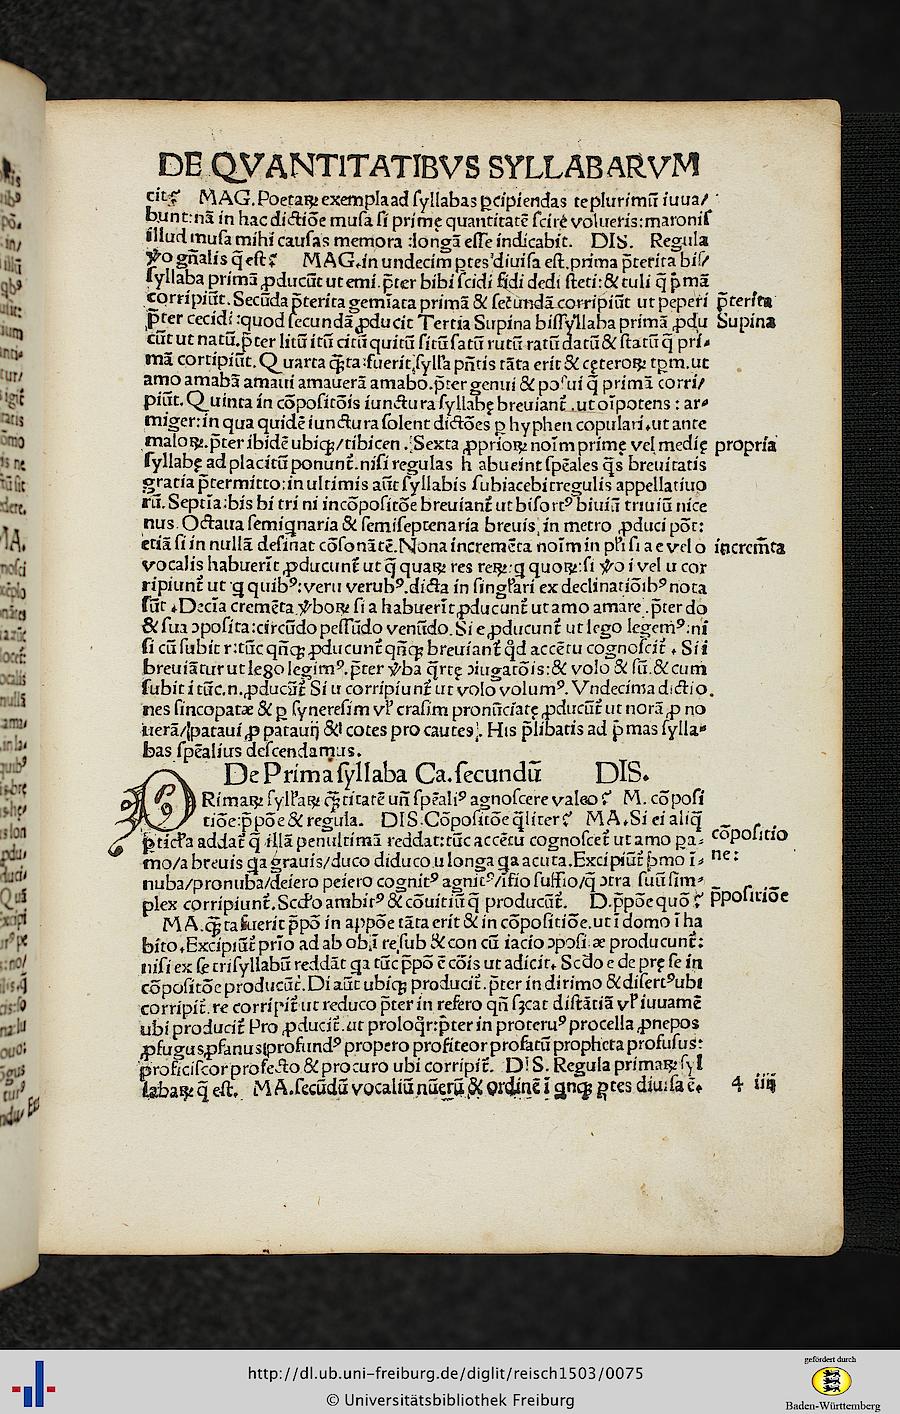 DE QVANTITATIBVS SYLLABARVM
cit? MAG. Poetaꝝ exempla ad syllabas ꝑcipiendas te plurimū iuua/
bunt: nā in hac dictiõe musa si primę quantitatē scire volueris: maronis
illud musa mihi causas memora : longā esse indicabit. DIS. Regula
ṽo gñalis q̄ est? MAG. in undecim ꝑtes diuisa est. prima p̄terita bis/
syllaba primā ꝓducūt ut emi. p̄ter bibi scidi fidi dedi steti: & tuli q̄ p̄mā
corripiūt. Secūda p̄terita gemiata primā & secundā corripiūt ut peperi
p̄ter cecidi : quod secundā ꝓducit Tertia Supina bissyllaba primā ꝓdu
cūt ut natū. p̄ter litū itū citū quitū sitū satū rutū ratū datū & statū q̄ pri
mā corripiūt. Quarta q̄ta: fuerit syll'a p̄ñtis tāta erit & cęteroꝝ tp̄m. ut
amo amabā amaui amauerā amabo. p̄ter genui & posui q̄ primā corri/
piūt. Quinta in cõpositõis iunctura syllabę breuiant̃ . ut oīpotens : ar
miger: in qua quidē iunctura solent dictões ꝑ hyphen copulari. ut ante
maloꝝ. p̄ter ibidē ubiqꝫ/tibicen . Sexta ꝓprioꝝ noīm primę vel medię
syllabę ad placitū ponunt̃. nisi regulas h abueint sp̄ēales q̄s breuitatis
gratia p̄termitto: in ultimis aūt syllabis subiacebit regulis appellatiuo
rū. Septīa: bis bi tri ni in incõpositõe breuiant̃ ut bisortꝰ biuiū triuiū nice
nus. Octaua semiqnaria & semiseptenaria breuis in metro ꝓduci põt:
etiā si in nullā desinat cõsonātē. Nona incremēta noīm in pl'i si a e vel o
vocalis habuerit̃ ꝓducunt̃ ut q̄ quaꝝ res reꝝ: q quoꝝ: si ṽo i vel u cor
ripiunt̃ ut q quibꝰ: veru verubꝰ. dicta in singl'ari ex declinatiõibꝰ nota
sūt . Decīa cremēta ṽboꝝ si a habuerīt ꝓducunt̃ ut amo amare . p̄ter do
& sua ↄposita: circūdo pessūdo venūdo. Si e ꝓducunt̃ ut lego legemꝰ: ni
si cū subit r: tūc qñqꝫ ꝓducunt̃ qñqꝫ breuiant̃ q̊d accētu cognoscit̃ . Si i
breuiātur ut lego legimꝰ. p̄ter ṽba q̄rtę ↄiugatõis: & volo & sū. & cum
subit i tūc .n. ꝓducūt̃ Si u corripiunt̃ ut volo volumꝰ. Vndecima dictio
nes sincopatæ & ꝑ syneresim vl' crasim pronūciatę ꝓducūt̃ ut norā ꝓ no
uerā/patauī ꝓ patauij & cotes pro cautes. His p̄libatis ad p̄mas sylla
bas sp̄ēalius descendamus.
p̄terita
Supina
propria
increm̄ta
De Prima syllaba Ca. secundū DIS.
PRimaꝝ syll'aꝝ q̄titatē uñ sp̄ēaliꝰ agnoscere valeo? M. cõposi
tiõe: p̄põe & regula. DIS. Cõpositõe q̄liter? MA. Si ei aliq̄
ꝑticl'a addat̃ q̄ illā penultimā reddat: tūc accētu cognoscet̃ ut amo ꝑa
mo/a breuis qa grauis/duco diduco u longa qa acuta. Excipiūt̃ p̄mo ī
nuba/pronuba/deiero peiero cognitꝰ agnitꝰ/isfio suffio/q̄ ↄtra suū sim
plex corripiunt̃. Scd̄o ambitꝰ & cõuitiū q̄ producūt̃. D. p̄põe quõ?
MA. q̄ta fuerit p̄põ in appõe tāta erit & in cõpositiõe. ut ī domo ī ha
bito. Excipiūt̃ prīo ad ab ob ī re sub & con cū iacio ↄposiæ producunt̃:
nisi ex se trisyllabū reddāt qa tūc p̄põ ē cõis ut adicit. Scd̄o e de pre se in
cõpositõe producūt̃. Di aūt ubiqꝫ producit̃. p̄ter in dirimo & disertꝰ ubi
corripit̃. re corripit̃ ut reduco p̄ter in refero qñ sꝫcat distātiā vl' iuuamē
ubi producit̃ Pro ꝓducit̃. ut proloq̄r: p̄ter in proteruꝰ procella ꝓnepos
ꝓfugus ꝓfanus profundꝰ propero profiteor profatū propheta profusus:
proficiscor profecto & procuro ubi corripit̃. DIS. Regula primaꝝ syl
labaꝝ q̄ est. MA. secūdū vocaliū nūerū & ordinē ī qnqꝫ ꝑtes diuisa ē.
cõpositio
ne:
p̄positiõe
4 iiij
http://dl.ub.uni-freiburg.de/diglit/reisch1503/0075
© Universitätsbibliothek Freiburg
gefördert durch
Baden-Württemberg